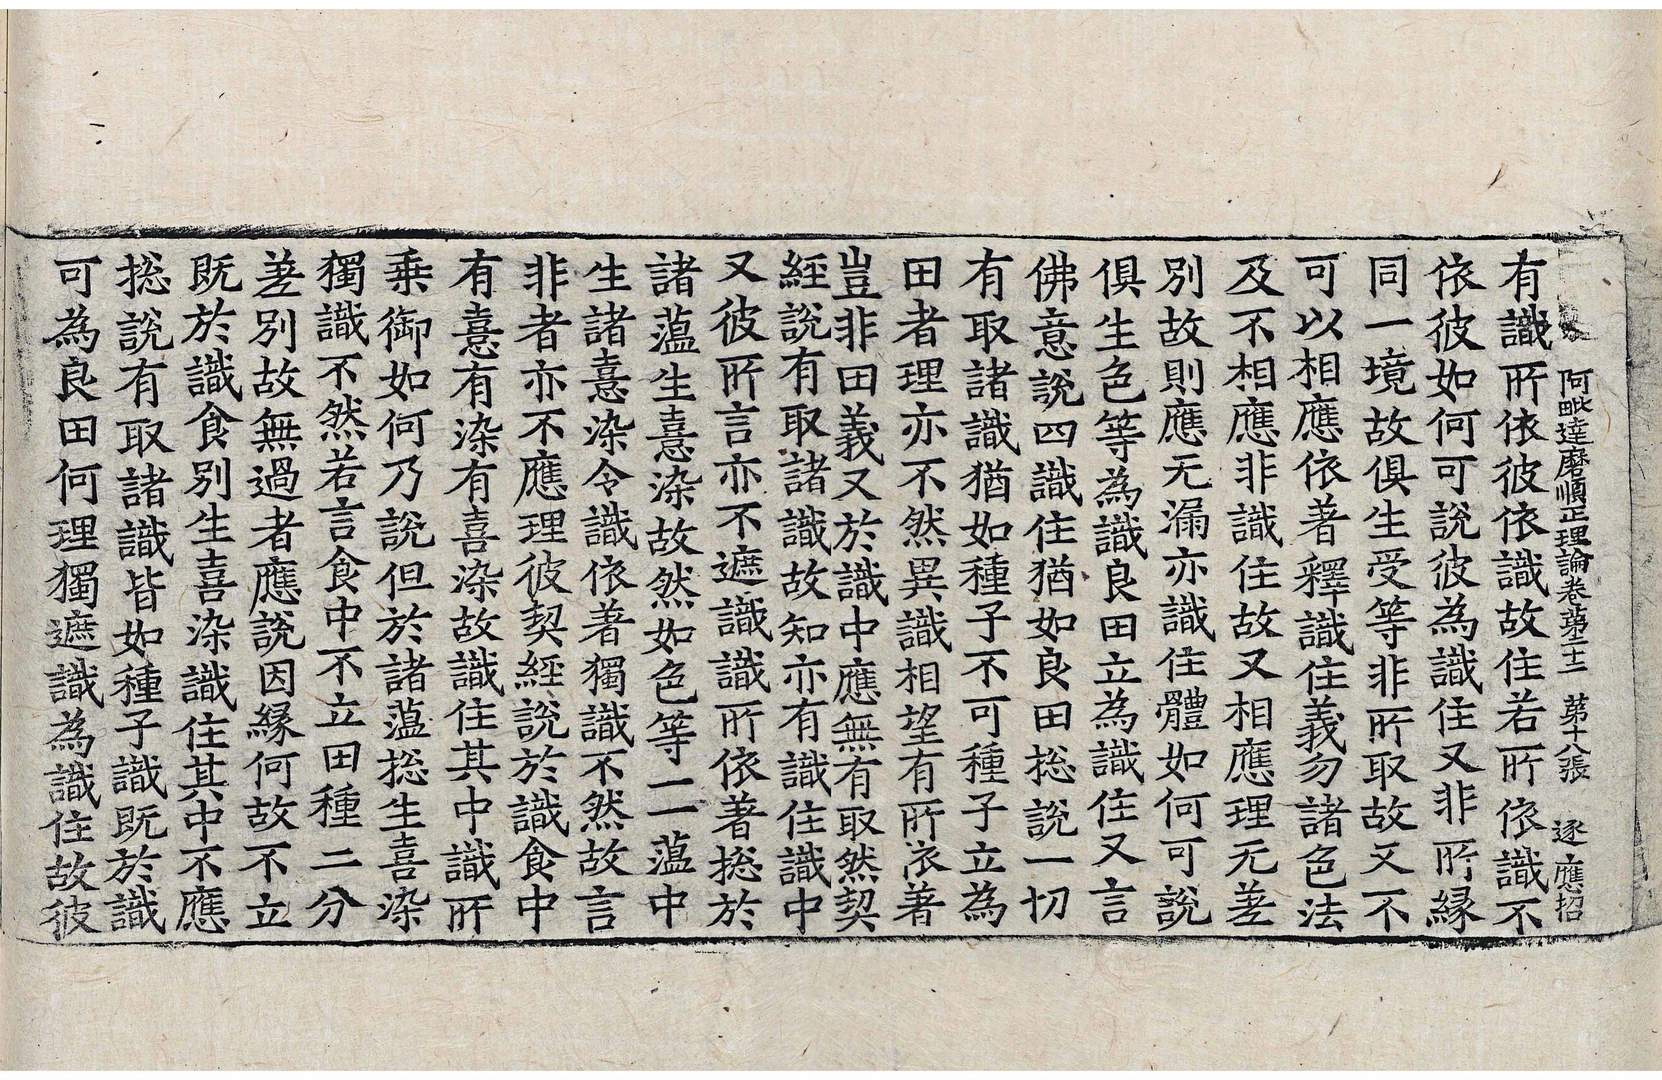 阿毗達磨順正理論卷第二十二　第十八張　逐　應招
有識所依彼依識故住若所依識不
依彼如何可說彼為識住又非所緣
同一境故俱生受等非所取故又不
可以相應依著釋識住義勿諸色法
及不相應非識住故又相應理无差
別故則應无漏亦識住體如何可說
俱生色等為識良田立為識住又言
佛意說四識住猶如良田捴說一切
有取諸識猶如種子不可種子立為
田者理亦不然異識相望有所依著
豈非田義又於識中應無有取然契
經說有取諸識故知亦有識住識中
又彼所言亦不遮識識所依著捴於
諸薀生憙染故然如色等一一薀中
生諸憙染令識依著獨識不然故言
非者亦不應理彼契經說於識食中
有憙有染有喜染故識住其中識所
乘御如何乃說但於諸薀捴生喜染
獨識不然若言食中不立田種二分
差別故無過者應說因緣何故不立
既於識食別生喜染識住其中不應
捴說有取諸識皆如種子識既於識
可為良田何理獨遮識為識住故彼